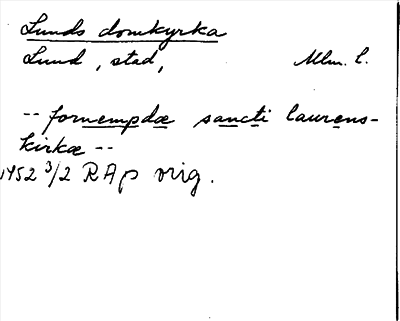 Lunds domkyrka
Lund, stad, Mlm. l.
-- fornempdæ sancti laurens-
kirkæ --
1452 3/2 RAp orig.